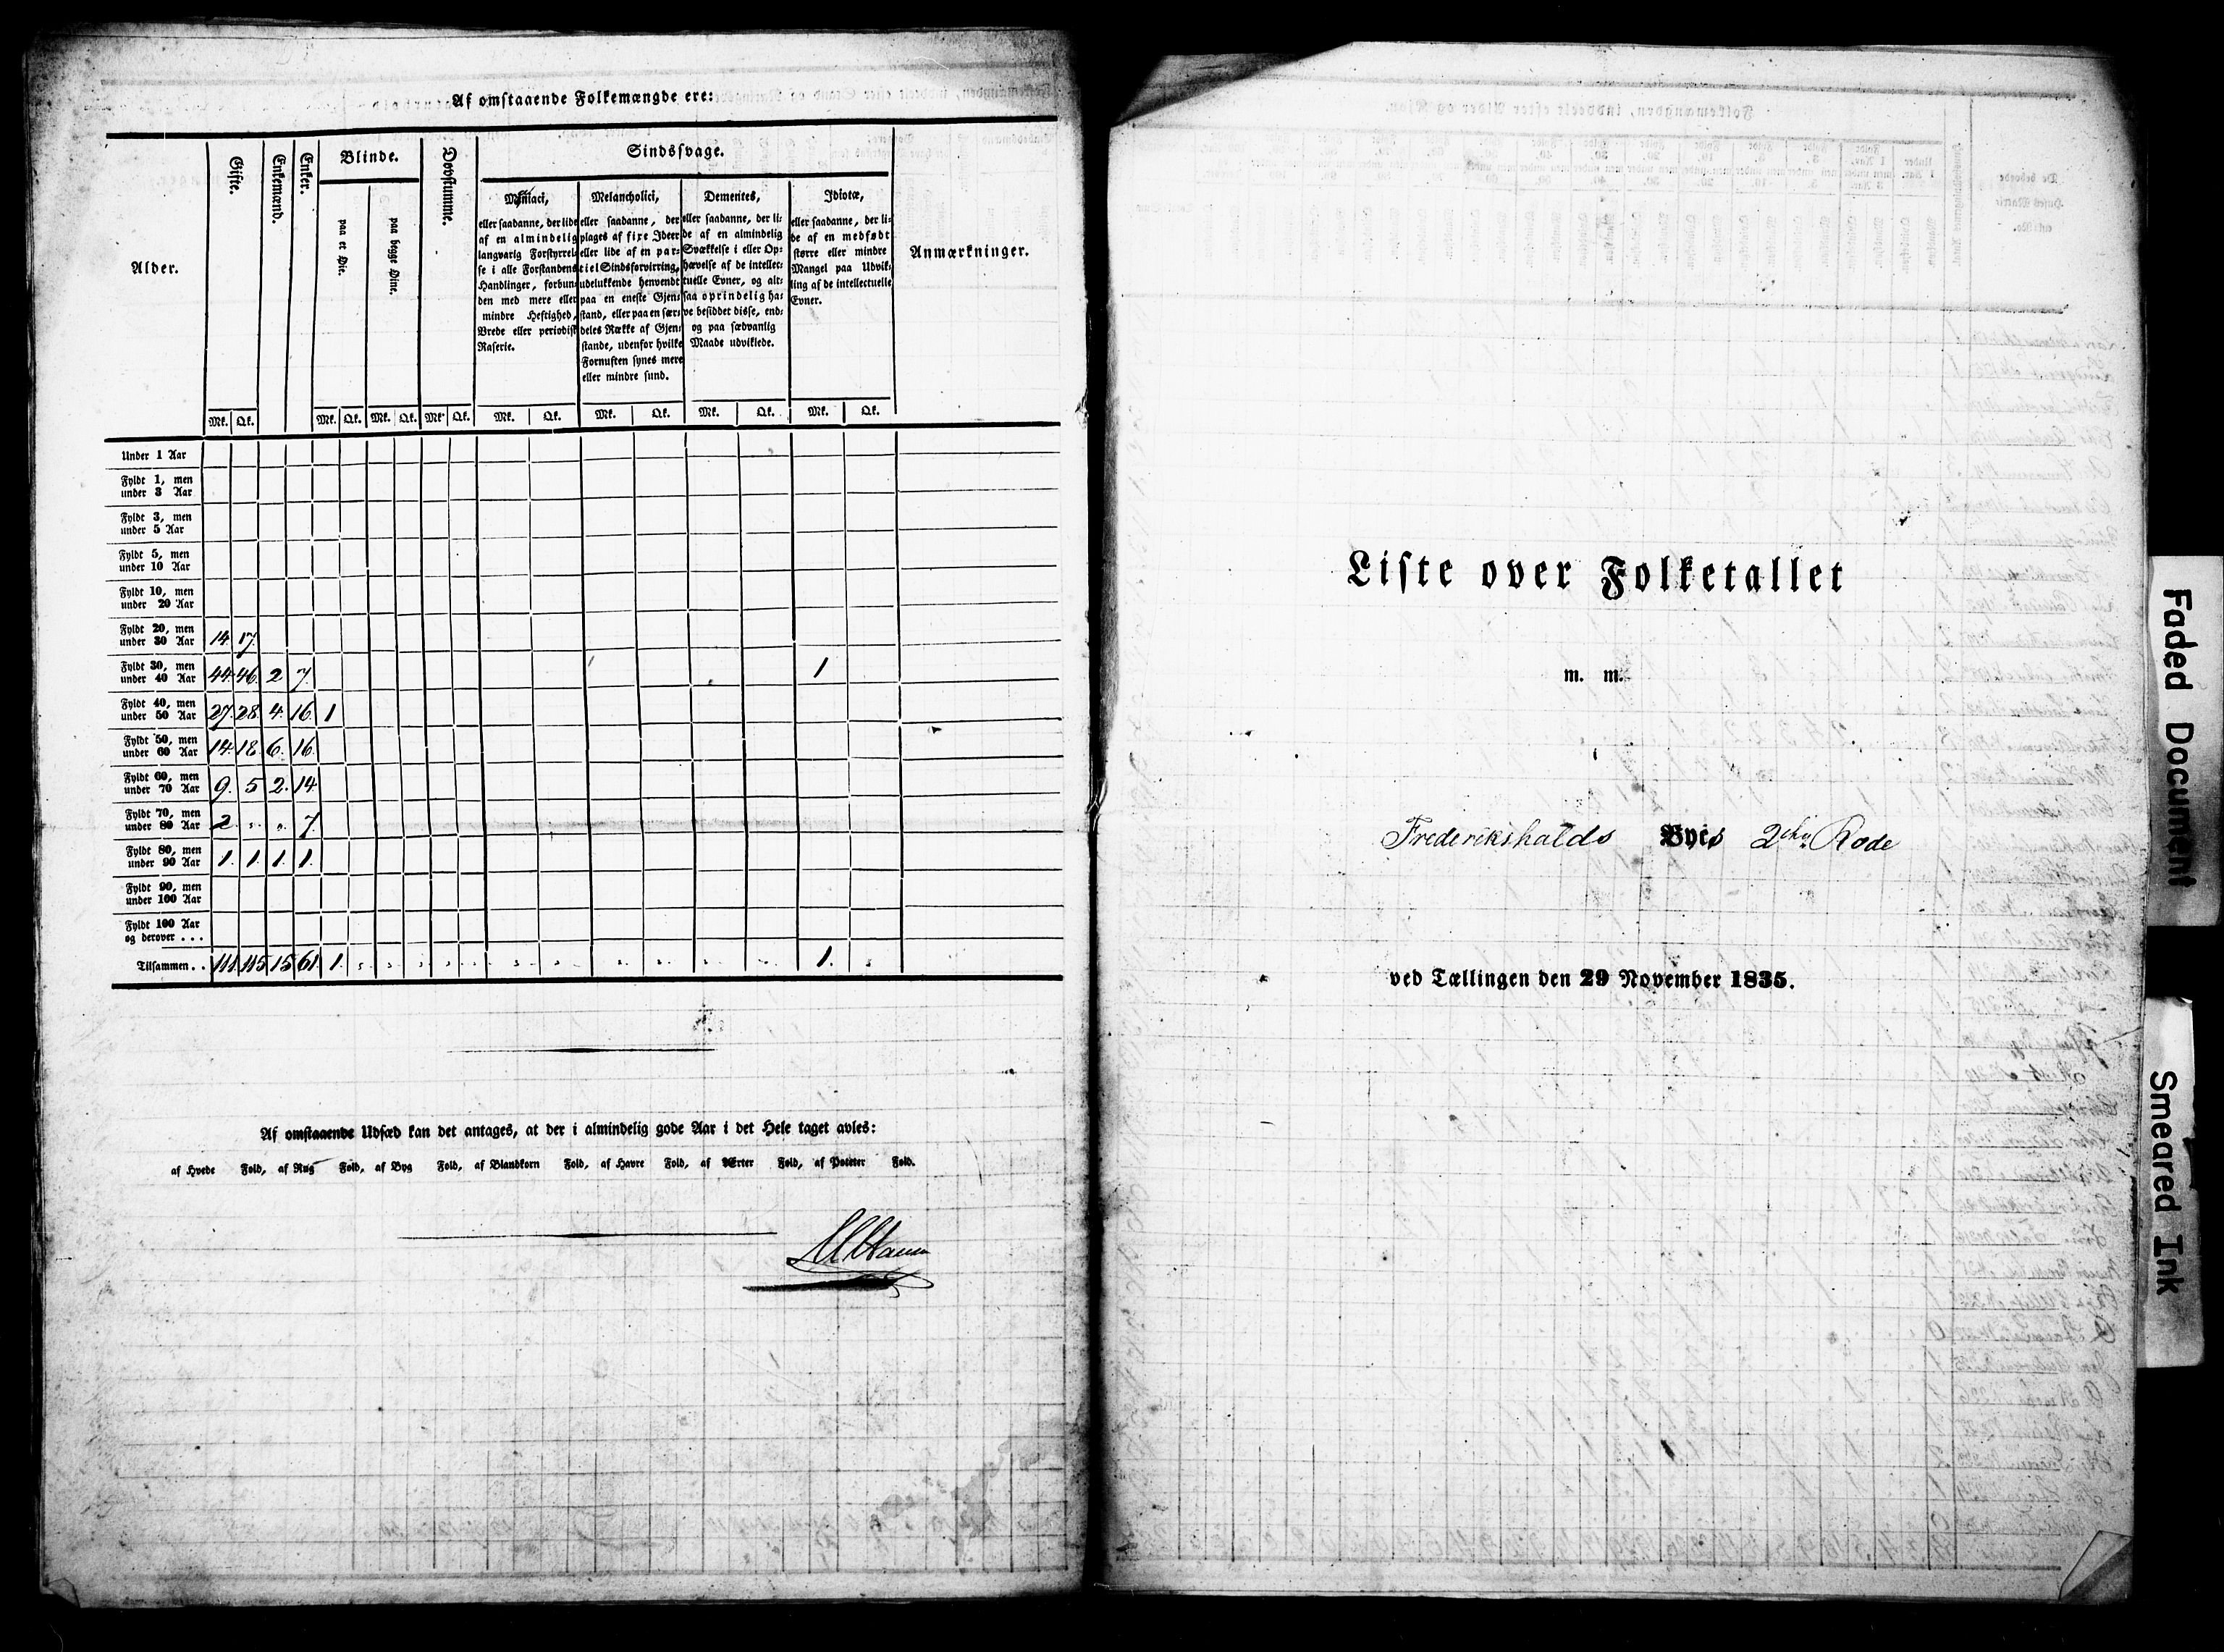 Af omstaaende Folkemængde ere:
Alder.
Gifte.
Enkemænd.
Enker.
Blinde.
paa et Øie.
paa begge Øine.
Døvstumme.
Sindssvage.
Maniaci,
eller saadanne, der lide
af en almindelig
langvarig Forstyrrel=
se i alle Forstandens
Handlinger, forbun=
den med mere eller
mindre Heftighed,
Vrede eller periodisk
Raserie.
Melancholici,
eller saadanne, der
plages af fixe Ideer
eller lide af en par=
tiel Sindsforvirring,
udelukkende henvendt
paa en eneste Gjen=
stand, eller paa en sær=
deles Række af Gjen=
stande, udenfor hvilke
Fornuften synes mere
eller mindre sund.
Dementes,
eller saadanne, der li=
de af en almindelig
Svækkelse i eller Op=
hævelse af de intellec=
tuelle Evner, og alt=
saa oprindelig ha=
ve besiddet disse, end=
og paa sædvanlig
Maade udviklede.
Idiotæ,
eller saadanne, der li=
de af en medfødt
større eller mindre
Mangel paa Udvik=
ling af de intellectuelle
Evner.
Anmærkninger.
Mk. Qk. Mk. Qk. Mk. Qk. Mk. Qk. Mk. Qk. Mk. Qk. Mk. Qk. Mk. Qk.
Under 1 Aar
Fyldt 1, men
under 3 Aar
Fyldt 3, men
under 5 Aar
Fyldt 5, men
under 10 Aar
Fyldt 10, men
under 20 Aar
Fyldt 20, men
under 30 Aar 14 17.
Fyldt 30, men
under 40 Aar 44. 46. 2 7. 1
Fyldt 40, men
under 50 Aar 27. 28. 4. 16. 1
Fyldt 50, men
under 60 Aar 14. 18. 6. 16.
Fyldt 60, men
under 70 Aar 9. 5 2. 14
Fyldt 70, men
under 80 Aar 2. " " 7.
Fyldt 80, men
under 90 Aar 1. 1. 1. 1.
Fyldt 90, men
under 100 Aar
Fyldt 100 Aar
og derover . . .
Tilsammen . . 111. 115 15 61. 1. 1.
Af omstaaende Udsæd kan det antages, at der i almindelig gode Aar i det Hele taget avles:
af Hvede Fold, af Rug Fold, af Byg Fold, af Blandkorn Fold, af Havre Fold, af Erter Fold, af Poteter Fold.
Liste over Folketallet
m. m.
Frederikshalds Byes 2den Rode
ved Tællingen den 29 November 1835.
Faded Document
Smeared Ink